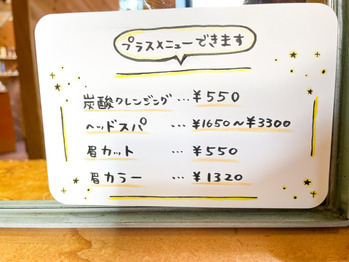 プラスメニューできます
炭酸クレンジング…¥550
ヘッドスパ…¥1650～¥3300
眉カット…¥550
眉カラー…¥1320